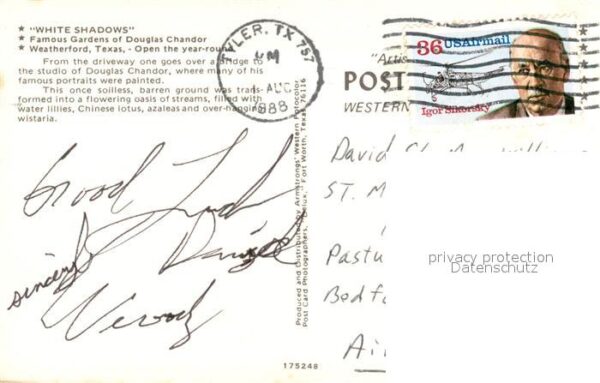 ★ "WHITE SHADOWS"
★ Famous Gardens of Douglas Chandor
★ Weatherford, Texas, - Open the year-round
From the driveway one goes over a bridge to
the studio of Douglas Chandor, where many of his
famous portraits were painted.
This once soilless, barren ground was trans-
formed into a flowering oasis of streams, filled with
water lillies, Chinese lotus, azaleas and over-hanging
wistaria.
TYLER, TX 757
PM
AUG
1988
"Artis
POST
WESTERN
36 USAirmail
Igor Sikorsky
Good Luck
sincerely
Woody
Produced and Distributed by Armstrongs' Western Fotocolor
Post Card Photographers, "Delux," Fort Worth, Texas 76116
David
ST. M
Pastu
Bedfo
Ai
privacy protection
Datenschutz
175248